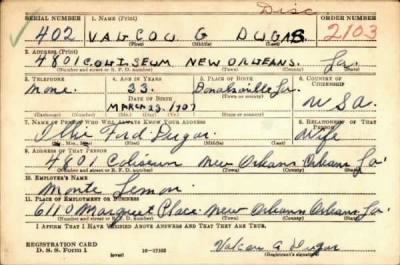 Disc
SERIAL NUMBER 1. NAME (Print) ORDER NUMBER
402 VALCOU G DUGAS 2103
(First) (Middle) (Last)
2. ADDRESS (Print)
4801 COLISEUM NEW ORLEANS. La.
(Number and street or R. F. D. number) (Town) (County) (State)
3. TELEPHONE 4. AGE IN YEARS 5. PLACE OF BIRTH 6. COUNTRY OF CITIZENSHIP
None 33. Donalsonville La.
DATE OF BIRTH (Town or county)
MARCH 23. 1907 U S a.
(Mo.) (Day) (Yr.) (State or country)
7. NAME OF PERSON WHO WILL ALWAYS KNOW YOUR ADDRESS 8. RELATIONSHIP OF THAT PERSON
Ford Dugas Wife
9. ADDRESS OF THAT PERSON
4801 Coliseum New Orleans Orleans La
(Number and street or R. F. D. number) (Town) (County) (State)
10. EMPLOYER'S NAME
Monte Lemon
11. PLACE OF EMPLOYMENT OR BUSINESS
6110 Marquet Place New Orleans Orleans La.
(Number and street or R. F. D. number) (Town) (County) (State)
I AFFIRM THAT I HAVE VERIFIED ABOVE ANSWERS AND THAT THEY ARE TRUE.
REGISTRATION CARD
D. S. S. Form 1 (over) Valcou G Dugas
(Registrant's signature)